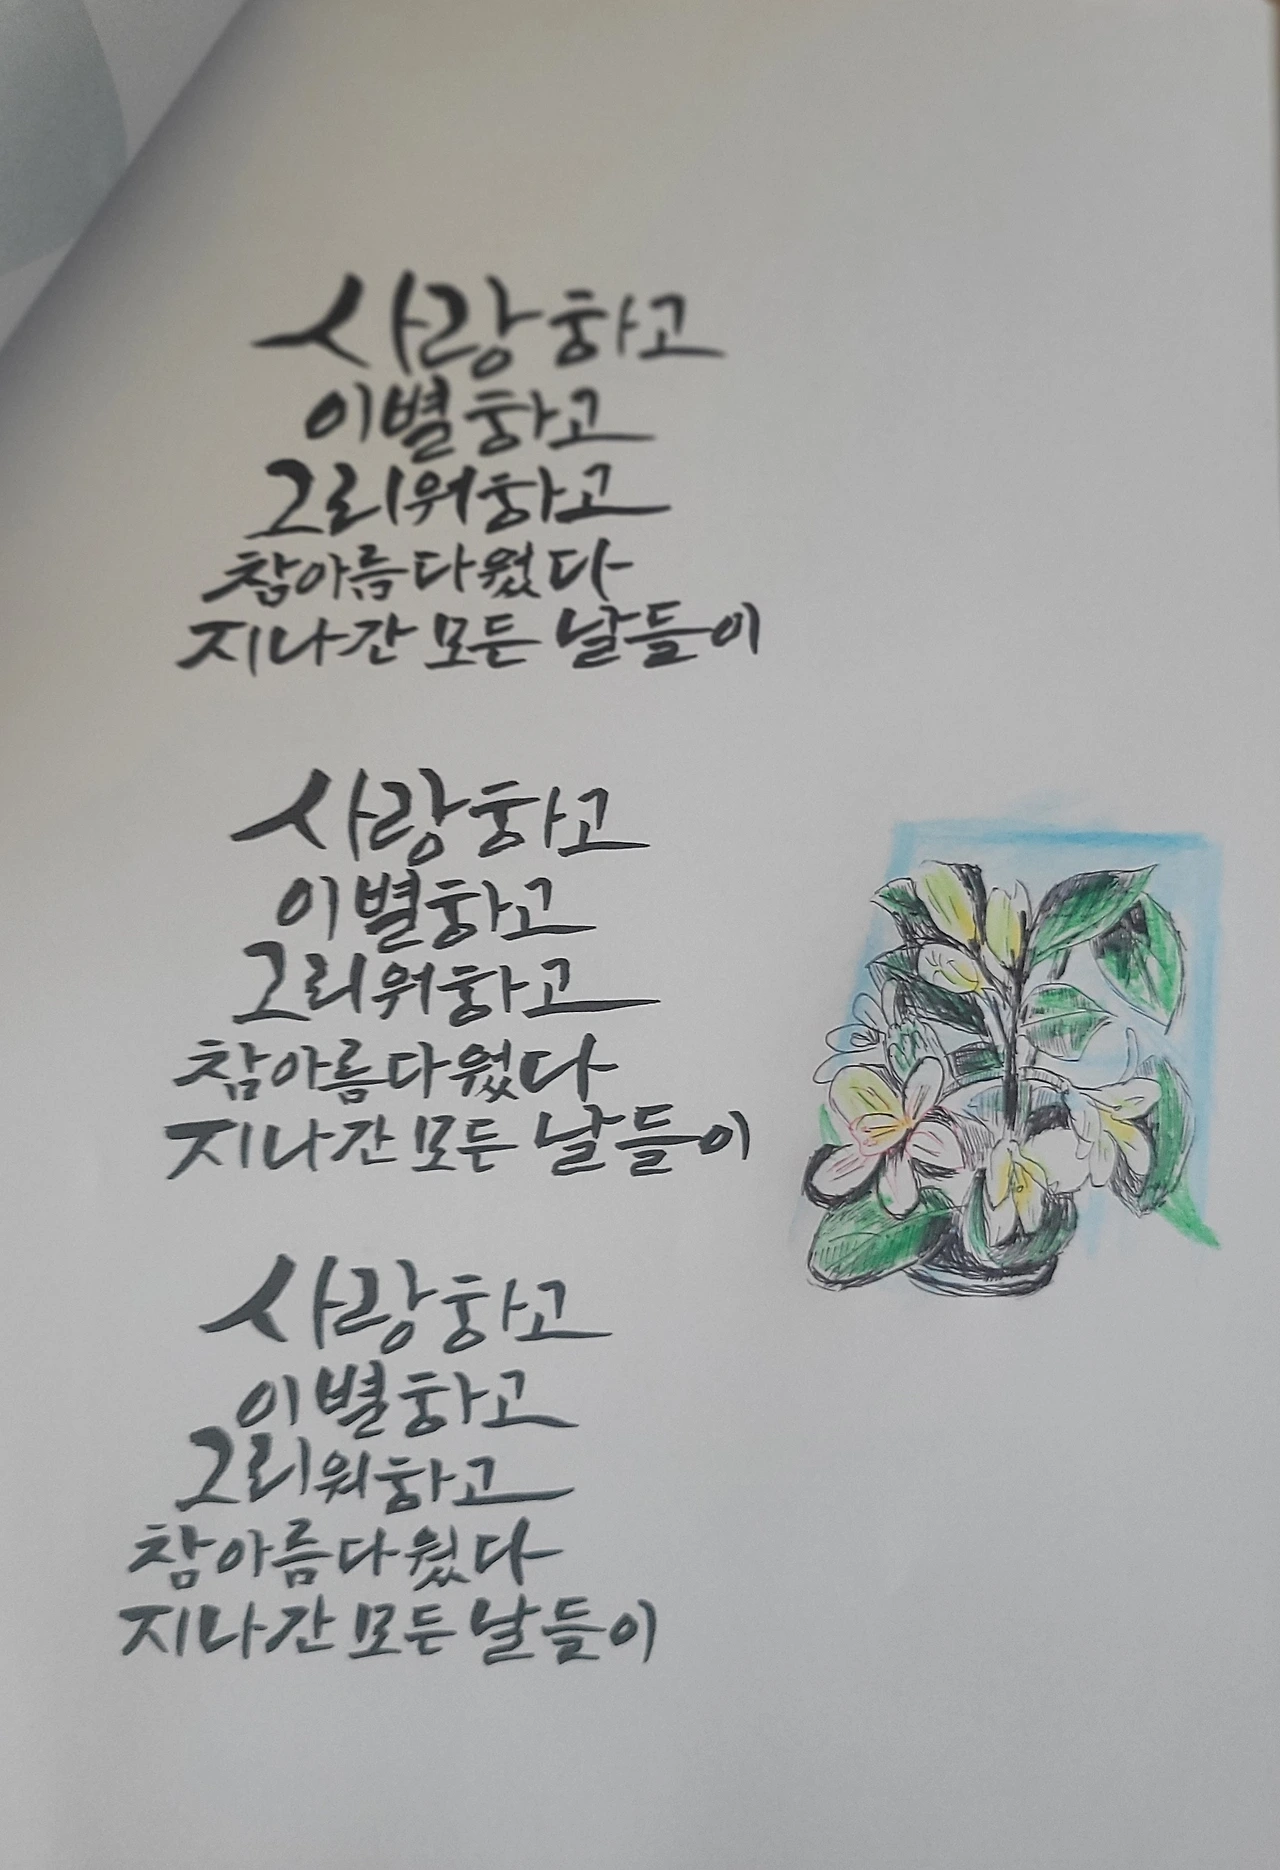 사랑하고
이별하고
그리워하고
참아름다웠다
지나간 모든 날들이
사랑하고
이별하고
그리워하고
참아름다웠다
지나간 모든 날들이
사랑하고
이별하고
그리워하고
참아름다웠다
지나간 모든 날들이